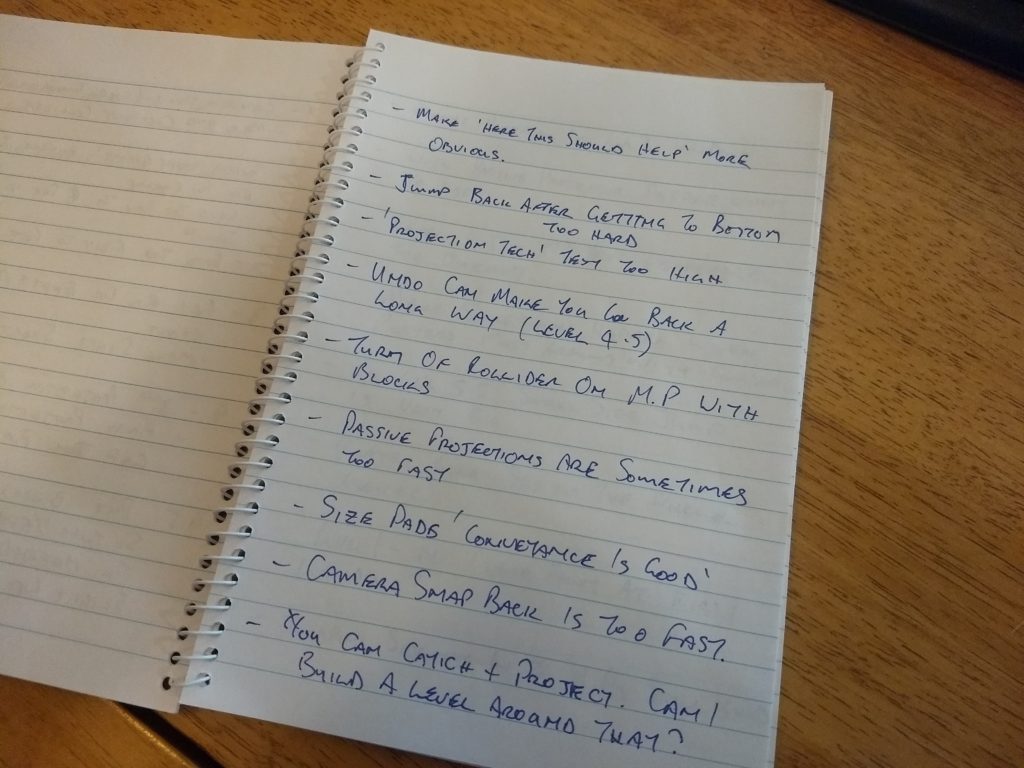 - MAKE 'HERE THIS SHOULD HELP' MORE
OBVIOUS.
- JUMP BACK AFTER GETTING TO BOTTOM
TOO HARD
- 'PROJECTION TECH' TEXT TOO HIGH
- UNDO CAN MAKE YOU GO BACK A
LONG WAY (LEVEL 4.5)
- TURN OF KOLLIDER ON M.P WITH
BLOCKS
- PASSIVE PROJECTIONS ARE SOMETIMES
TOO FAST
- SIZE PADS 'CONVEYANCE IS GOOD'
- CAMERA SNAP BACK IS TOO FAST.
- YOU CAN CATCH + PROJECT. CAN I
BUILD A LEVEL AROUND THAT?